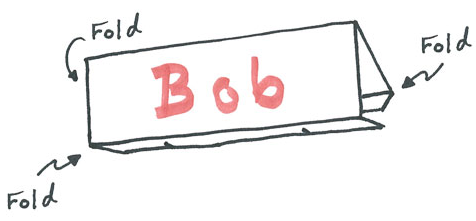 Fold
Fold
Bob
Fold